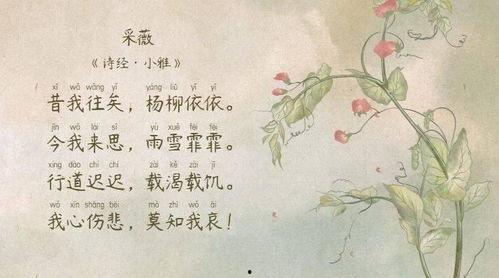 采薇
《诗经·小雅》
xī wǒ wǎng yǐ yáng liǔ yī yī
昔我往矣，杨柳依依。
jīn wǒ lái sī yù xuě fēi fēi
今我来思，雨雪霏霏。
xíng dào chí chí zài kě zài jī
行道迟迟，载渴载饥。
wǒ xīn shāng bēi mò zhī wǒ āi
我心伤悲，莫知我哀！